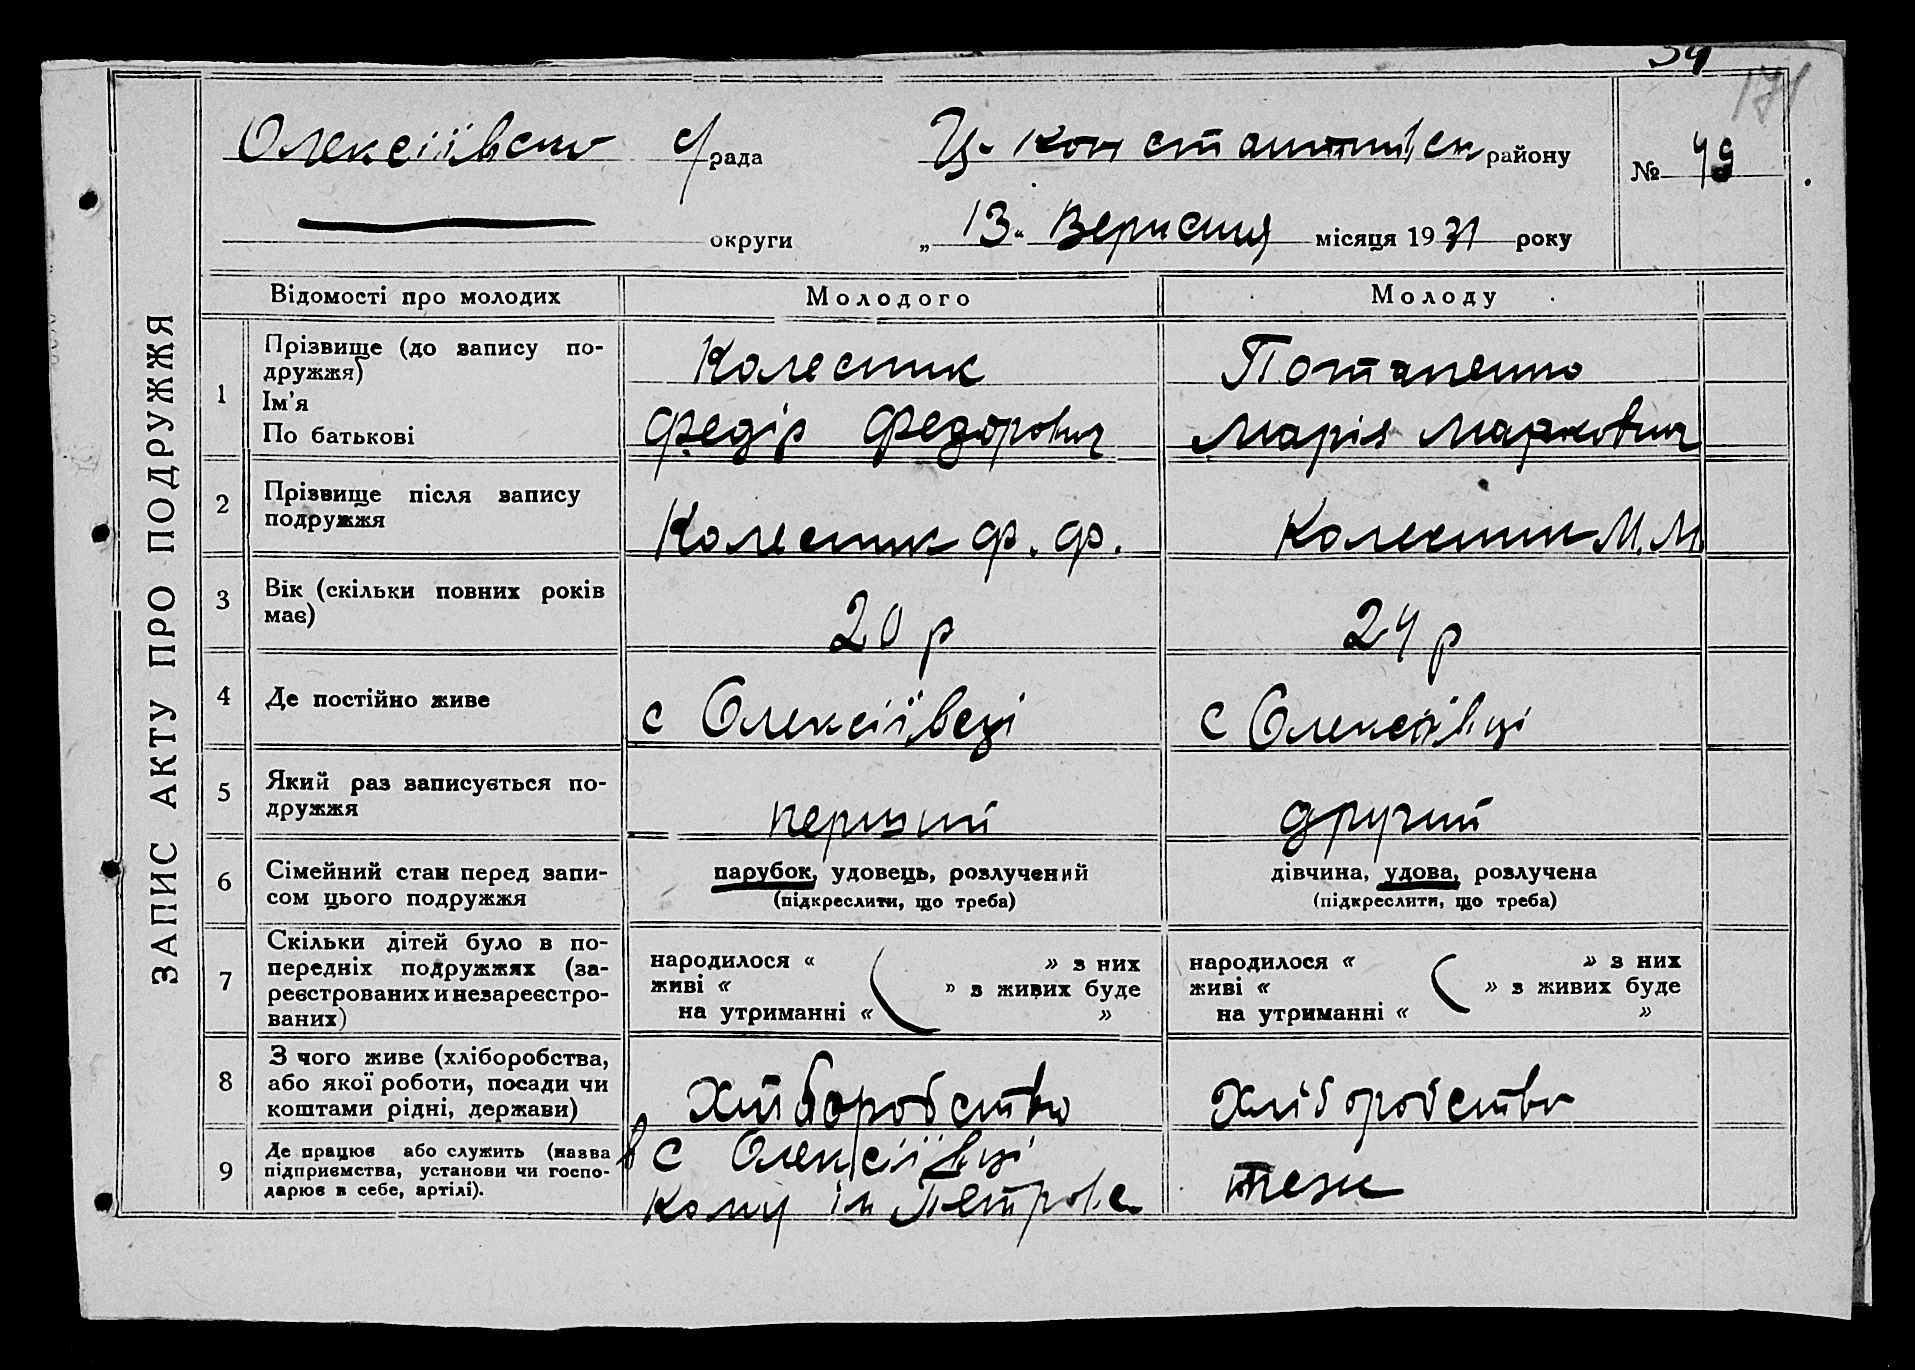 171
ЗАПИС АКТУ ПРО ПОДРУЖЖЯ
Олексіївсько с/рада Ц-Константинівск району № 49
округи „13“ Вересня місяця 1931 року
Відомості про молодих Молодого Молоду
1 Прізвище (до запису по-
дружжя)
Ім'я
По батькові
Колесник
Федір Федорович
Потапенко
Марія Маркович
2 Прізвище після запису
подружжя
Колесник Ф. Ф.
Колесник М. М.
3 Вік (скільки повних років
має)
20 р
24 р
4 Де постійно живе
с Олексіївеці
с Олексіївці
5 Який раз записується по-
дружжя
перший
другий
6 Сімейний стан перед запи-
сом цього подружжя
парубок, удовець, розлучений
(підкреслити, що треба)
дівчина, удова, розлучена
(підкреслити, що треба)
7 Скільки дітей було в по-
передніх подружжях (за-
реєстрованих и незареєстро-
ваних)
народилося « » з них
живі « » з живих буде
на утриманні « »
народилося « » з них
живі « » з живих буде
на утриманні « »
8 З чого живе (хліборобства,
або якої роботи, посади чи
коштами рідні, держави)
Хліборобство
Хліборобство
9 Де працює або служить (назва
підприємства, установи чи госпо-
дарює в себе, артілі).
в с Олексіївці
кому ім Петровс.
теж